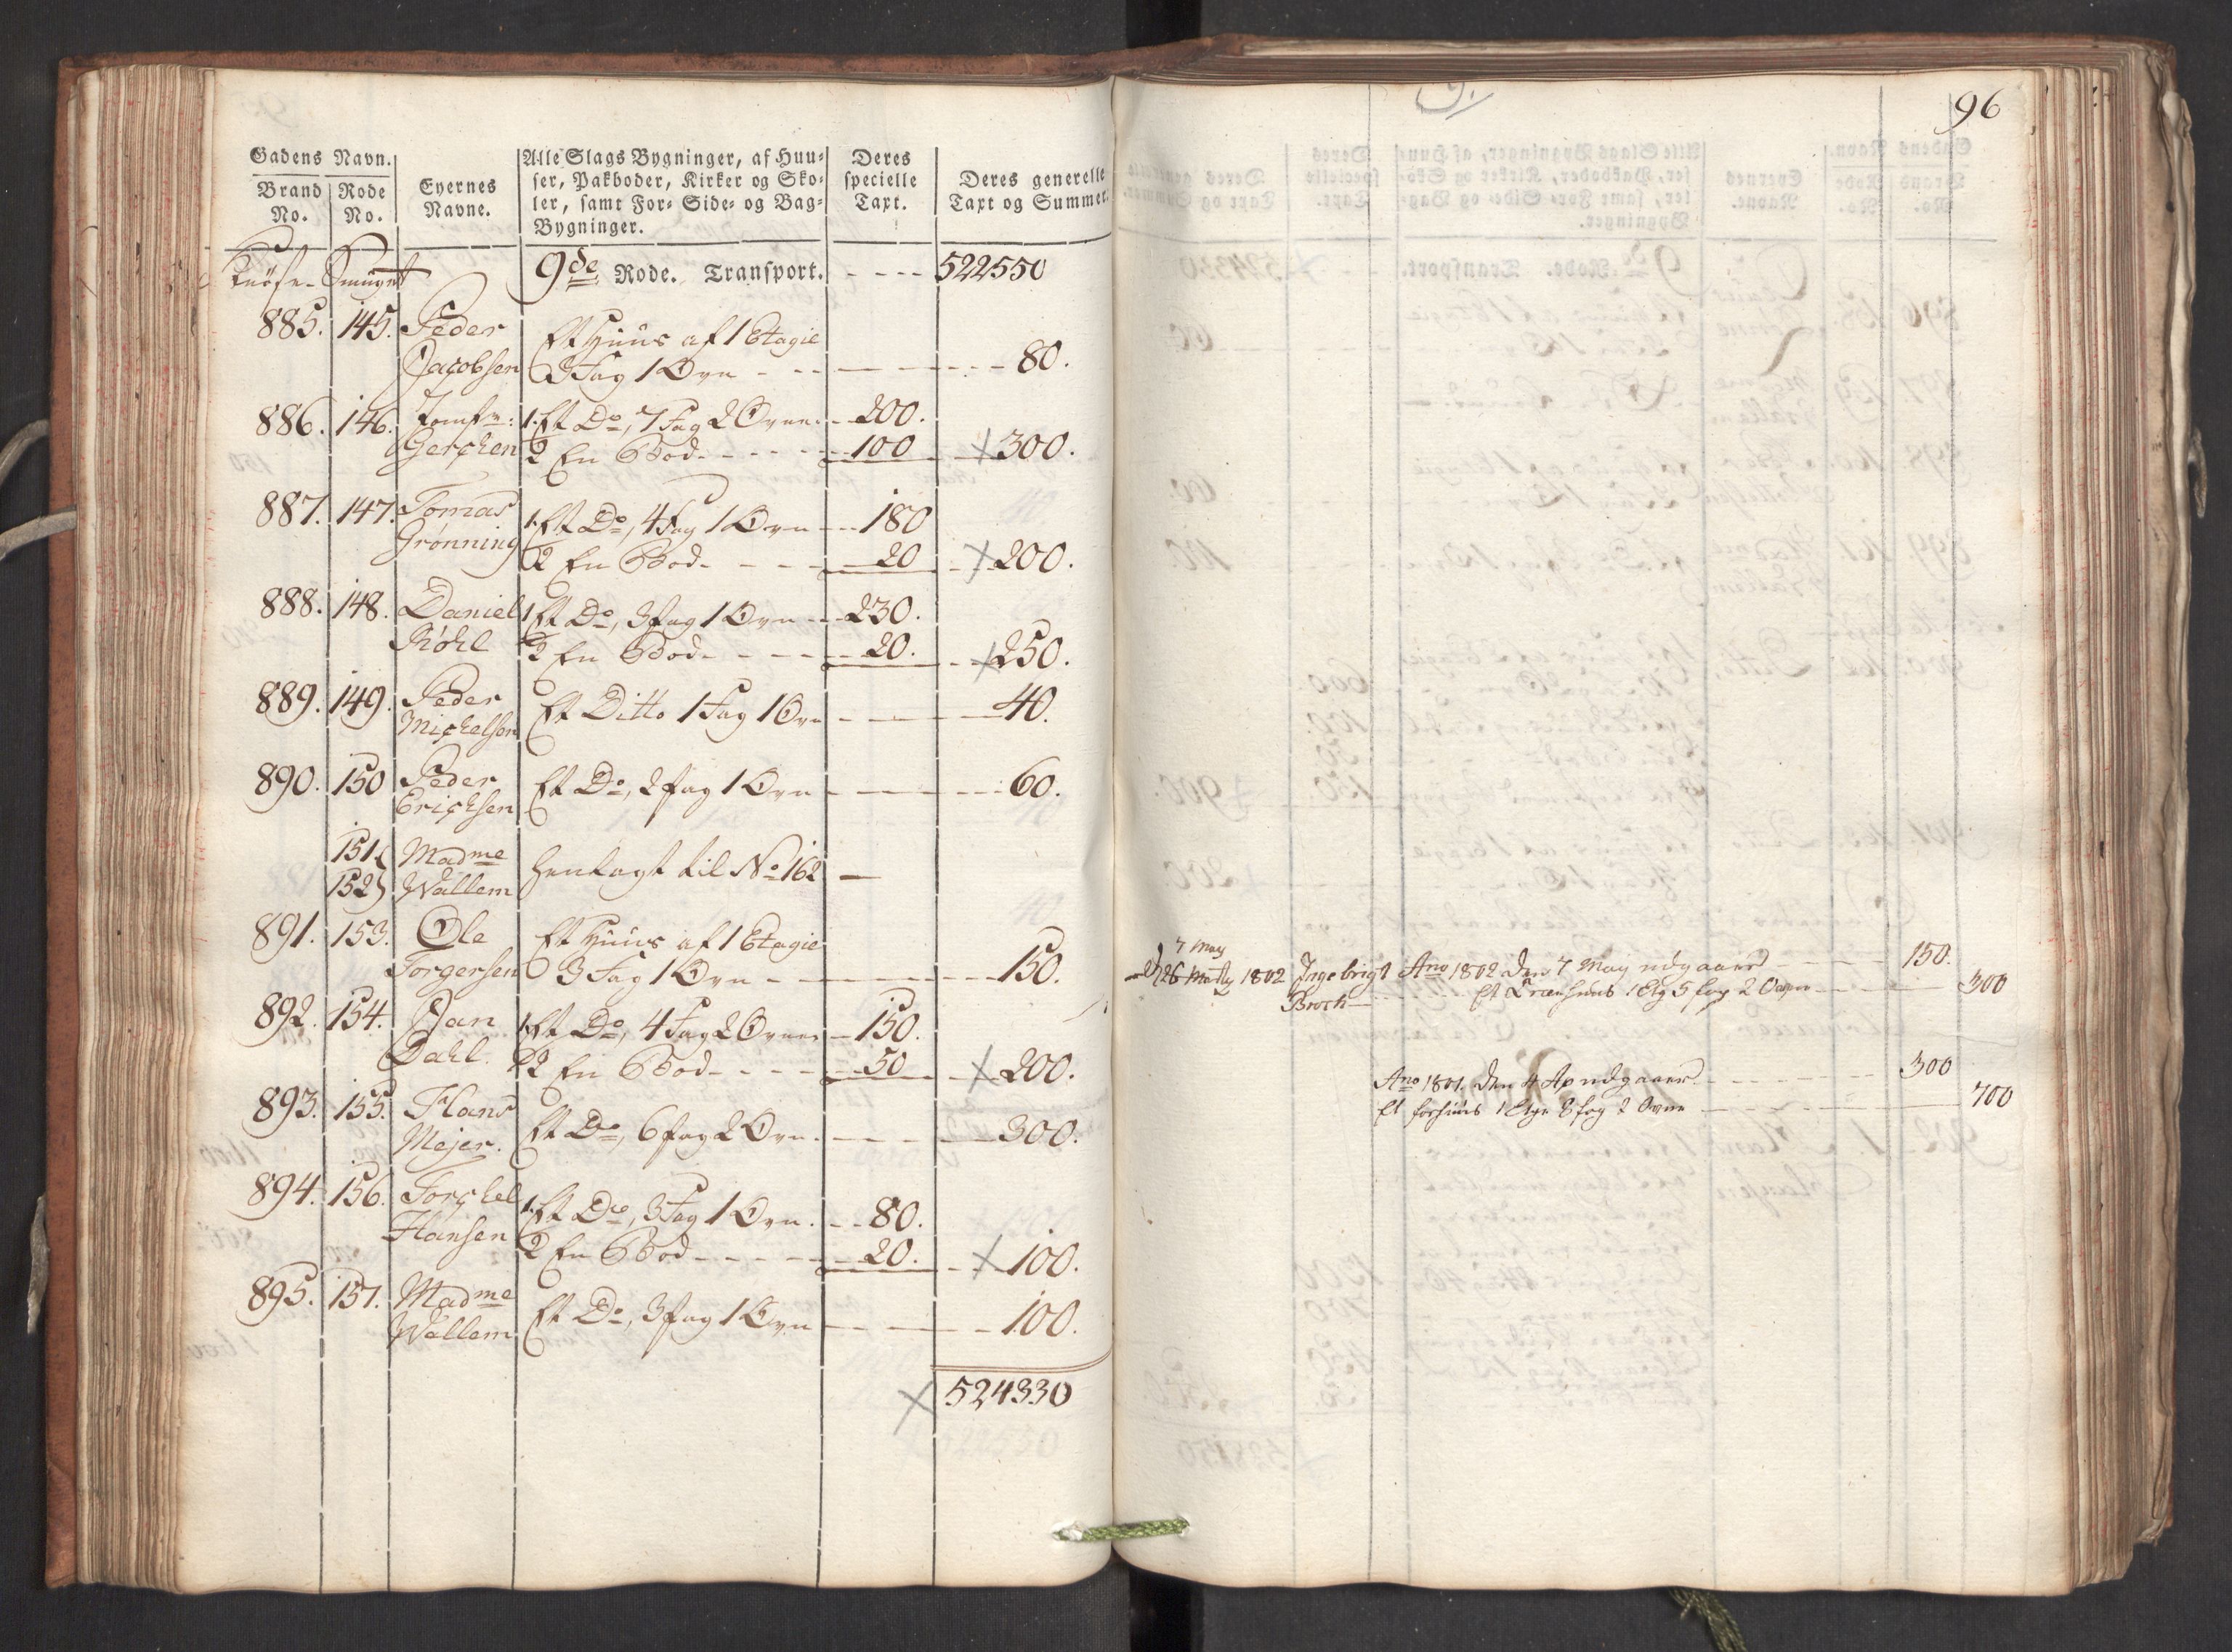 Gadens Navn.
Brand No. Rode No. Eyernes Navne. Alle Slags Bygninger, af Huu-
ser, Pakboder, Kirker og Sko-
ler, samt For- Side- og Bag-
Bygninger. Deres specielle Taxt. Deres generelle Taxt og Summer.
Knøse-Smuget 9de Rode. Transport. - - - - 522550
885. 145. Peder Et Huus af 1 Etagie
Jacobsen 3 Fag 1 Ovn - - - - - - 80.
886. 146. Jomfr: 1. Et Do, 7 Fag 2 Ovne. - 200.
Gerchen 2 En Bod - - - - - 100 - × 300.
887. 147. Tomas 1. Et Do, 4 Fag 1 Ovn - - 180
Grønning 2 En Bod - - - - 20 - × 200.
888. 148. Daniel 1. Et Do, 3 Fag 1 Ovn - - 230.
Køhl 2 En Bod - - - - 20. - × 250.
889. 149. Peder Et Ditto 1 Fag 1 Ovn - - - - 40.
Michelsen
890. 150 Peder Et Do, 2 Fag 1 Ovn - - - - 60.
Erichsen
151 Madme henlagt til No 162 -
152 Wallem
891. 153. Ole Et Huus af 1 Etagie
Torgersen 3 Fag 1 Ovn - - - - - 150.
892. 154. Jan 1. Et Do, 4 Fag 2 Ovne - 150.
Dahl. 2 En Bod - - - - - 50 - × 200.
893. 155. Hans Et Do, 6 Fag 2 Ovn. - - - - 300.
Mejer.
894. 156. Torchel 1. Et Do, 3 Fag 1 Ovn. - - 80.
Hansen 2 En Bod - - - - - 20. - × 100.
895. 157. Madme Et Do, 3 Fag 1 Ovn - - - - 100.
Wallem
× 524330
96
7 May
1802 Ingebrigt Ano 1802 den 7 May udgaaer - - - - 150.
Broch - Et Huus 1 Etg 5 fag 2 Ovne - - - - 300
Ano 1801. den 4 Ap udgaaer - - - - 300
Et forhuus 1 Etge 8 fag 2 Ovne - - - - 700